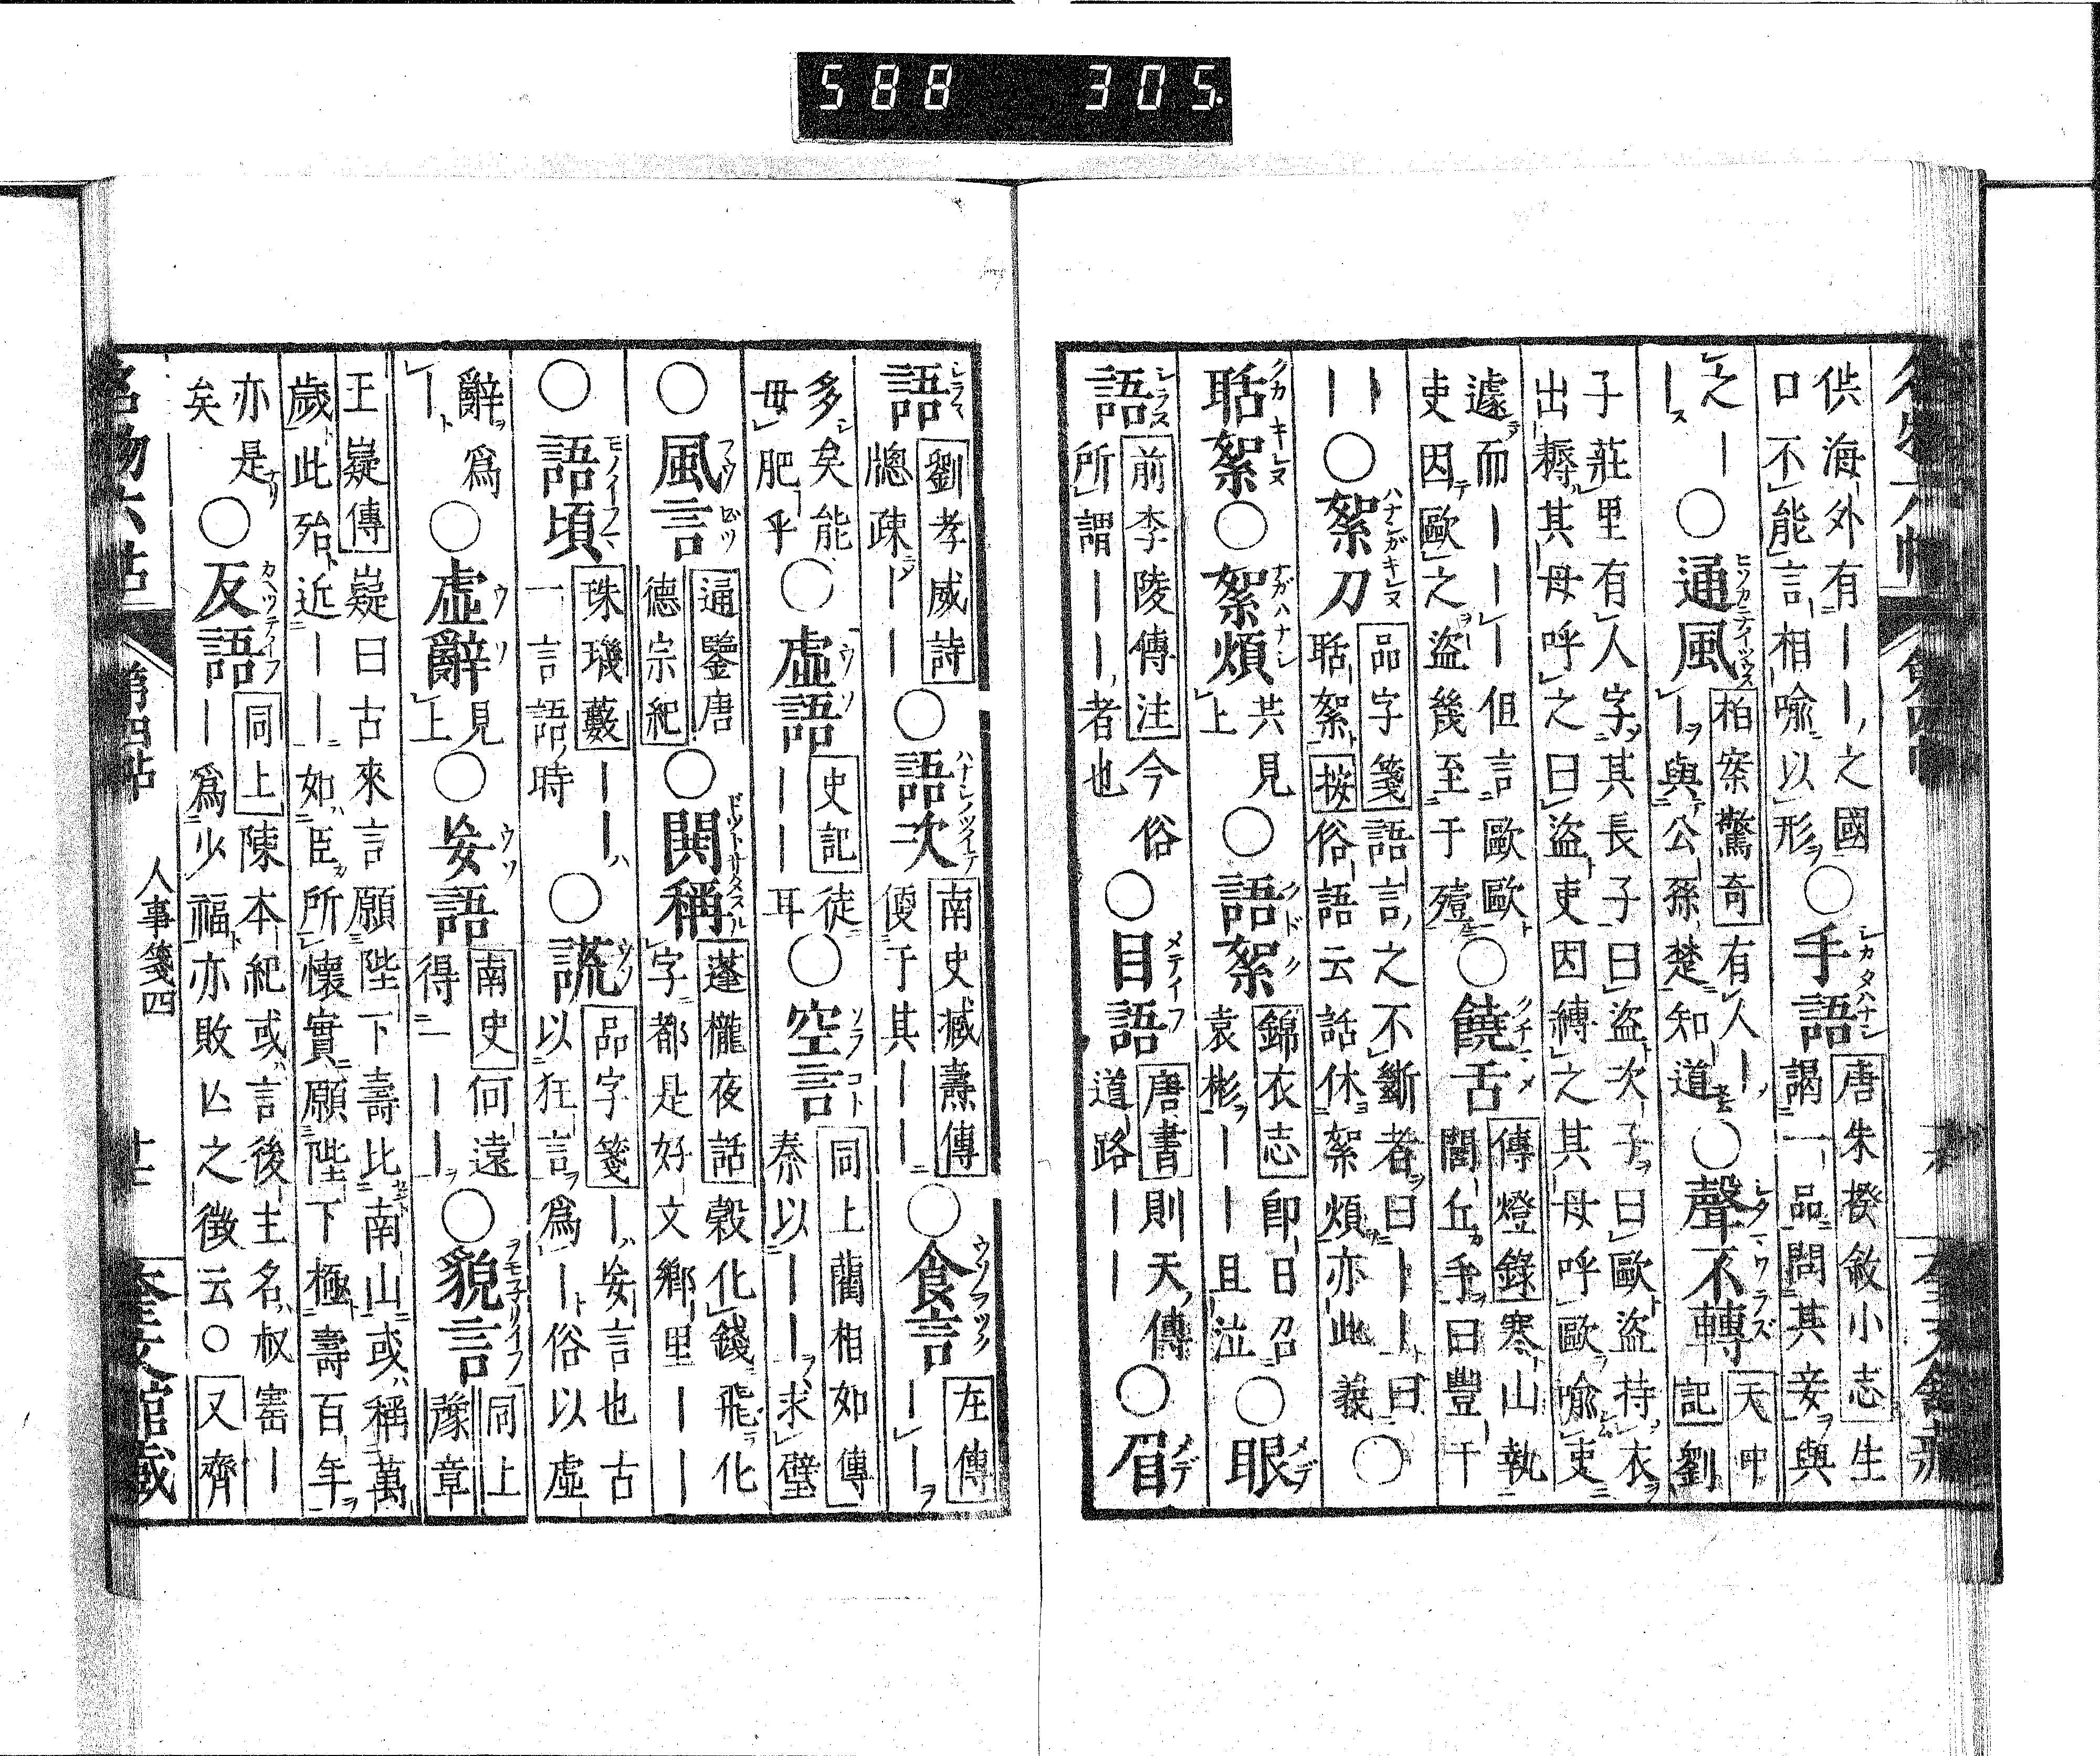 588 305
供海外有――之國
口不能言相喩以形
○手語
唐朱揆敘小志生
謁一品問其妾與
之―
―
○通風
柏案驚奇有人―
―與公孫楚知道
○聲不轉
天中
記劉
子莊里有人字其長子曰盜次子曰歐盜持衣
出耨其母呼之曰盜吏因縛之其母呼歐喩吏
遽而――――但言歐歐
吏因歐之盜幾至于殪
○饒舌
傳燈錄寒山執
閭丘手曰豐干
――
○絮刀
品字箋語言之不斷者曰――曰
聒絮按俗語云話休絮煩亦此義
○
聒絮○絮煩
共見
上
○語絮
錦衣志卽日召
袁彬――且泣
○眼
語
前李陵傳注今俗
所謂――者也
○目語
唐書則天傳
道路――
○眉
語
劉孝威詩
牕疎――
○語次
南史臧燾傳
便于其――
○食言
左傳
――
多矣能
毋肥乎
○虛語
史記徒
――耳
○空言
同上藺相如傳
秦以――求璧
○風言
通鑒唐
德宗紀
○閧稱
蓬櫳夜話穀化錢飛化
字都是好文鄕里――
○語頃
珠璣藪――
一言語時
○謊
品字箋―妄言也古
以狂言爲―俗以虛
辭爲
―
○虛辭
見
上
○妄語
南史何遠
得一――
○貌言
同上
豫章
王嶷傳嶷曰古來言願陛下壽比南山或稱萬
歲此殆近――如臣所懷實願陛下極壽百年
亦是
矣
○反語
同上陳本紀或言後主名叔寶―
―爲少福亦敗亡之徵云○又齊
名物六帖 第四帖 人事箋四